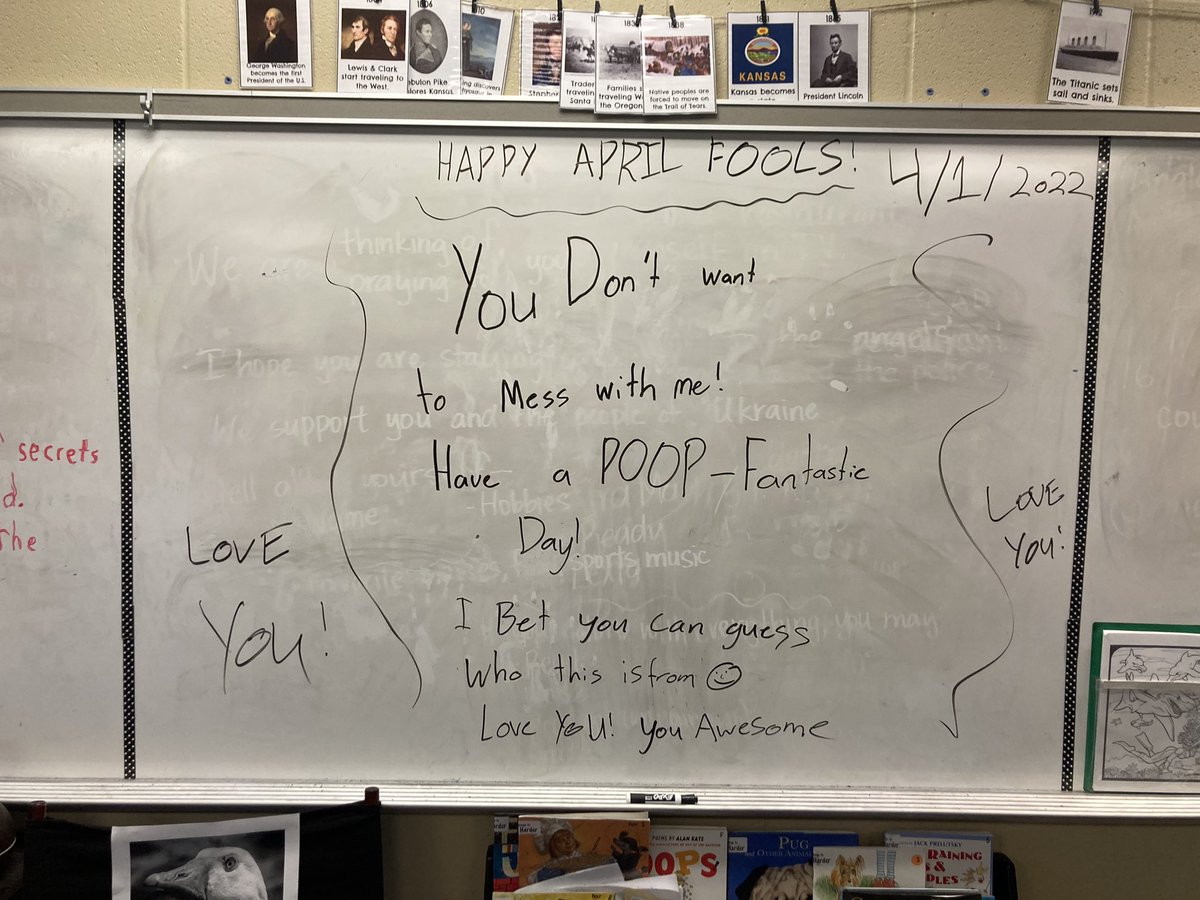 George Washington
becomes the first
President of the U.S.
Lewis & Clark
start traveling to
the West.
1806
bulon Pike
ores Kansas
Trader
travelin
Santa
Families s
traveling W
the Oregon
Native peoples are
forced to move on
the Trail of Tears.
KANSAS
Kansas becomes
President Lincoln
The Titanic sets
sail and sinks.
HAPPY APRIL FOOLS!
4/1/2022
You Don't want
to Mess with me!
Have a POOP-Fantastic
Day!
I Bet you can guess
Who this is from
Love YoU! you Awesome
LOVE
YoU!
LOVE
YoU!
secrets
d.
the
We are thinking of
praying
I hope you are staying
We support you and the people of Ukraine
- Hobbies
Ready
sports music
you may
EXPO
POEMS BY ALAN KATZ
OOPS
PUG
AND OTHER ANIMA
JACK PRELUTSKY
RAINING
S &
DLES